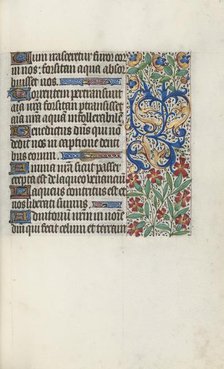 Cum irasceretur furor eorum
in nos: forsitan aqua absor
buisset nos.
Torrentem pertransiuit
aia nostra: forsitan pertransisset
aia nostra aquam intollerabilem.
Benedictus dns qui non
dedit nos in captione denti
bus eorum.
Anima nostra sicut passer
erepta est de laqueo venantium
Laqueus contritus est et
nos liberati sumus.
Adiutorium nrm in noie
dni qui fecit celum et terram